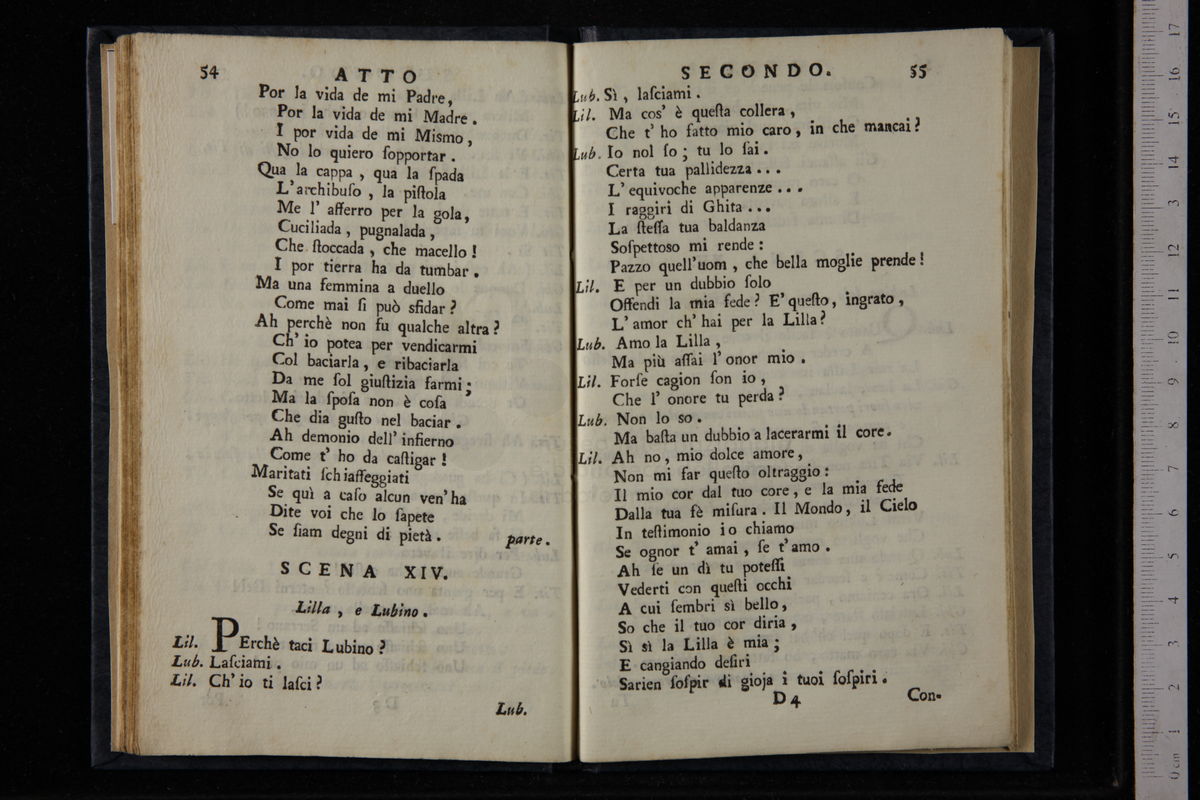 54
ATTO
Por la vida de mi Padre,
Por la vida de mi Madre.
I por vida de mi Mismo,
No lo quiero ſopportar.
Qua la cappa, qua la ſpada
L'archibuſo, la piſtola
Me l' afferro per la gola,
Cuciliada, pugnalada,
Che ſtoccada, che macello!
I por tierra ha da tumbar.
Ma una femmina a duello
Come mai ſi può sfidar?
Ah perchè non fu qualche altra?
Ch' io potea per vendicarmi
Col baciarla, e ribaciarla
Da me ſol giuſtizia farmi;
Ma la ſpoſa non è coſa
Che dia guſto nel baciar.
Ah demonio dell' infierno
Come t' ho da caſtigar!
Maritati ſchiaffeggiati
Se quì a caſo alcun ven' ha
Dite voi che lo ſapete
Se ſiam degni di pietà. parte.
SCENA XIV.
Lilla, e Lubino.
Lil. PErchè taci Lubino?
Lub. Laſciami.
Lil. Ch' io ti laſci?
Lub.
SECONDO. 55
Lub. Sì, laſciami.
Lil. Ma cos' è queſta collera,
Che t' ho fatto mio caro, in che mancai?
Lub. Io nol ſo; tu lo ſai.
Certa tua pallidezza...
L' equivoche apparenze...
I raggiri di Ghita...
La ſteſſa tua baldanza
Soſpettoso mi rende:
Pazzo quell'uom, che bella moglie prende!
Lil. E per un dubbio ſolo
Offendi la mia fede? E' queſto, ingrato,
L' amor ch' hai per la Lilla?
Lub. Amo la Lilla,
Ma più aſſai l' onor mio.
Lil. Forſe cagion ſon io,
Che l' onore tu perda?
Lub. Non lo so.
Ma baſta un dubbio a lacerarmi il core.
Lil. Ah no, mio dolce amore,
Non mi far queſto oltraggio:
Il mio cor dal tuo core, e la mia fede
Dalla tua fè miſura. Il Mondo, il Cielo
In teſtimonio io chiamo
Se ognor t' amai, ſe t'amo.
Ah ſe un dì tu poteſſi
Vederti con queſti occhi
A cui ſembri sì bello,
So che il tuo cor diria,
Sì sì la Lilla è mia;
E cangiando deſiri
Sarien ſoſpir di gioja i tuoi ſoſpiri.
D 4 Con-